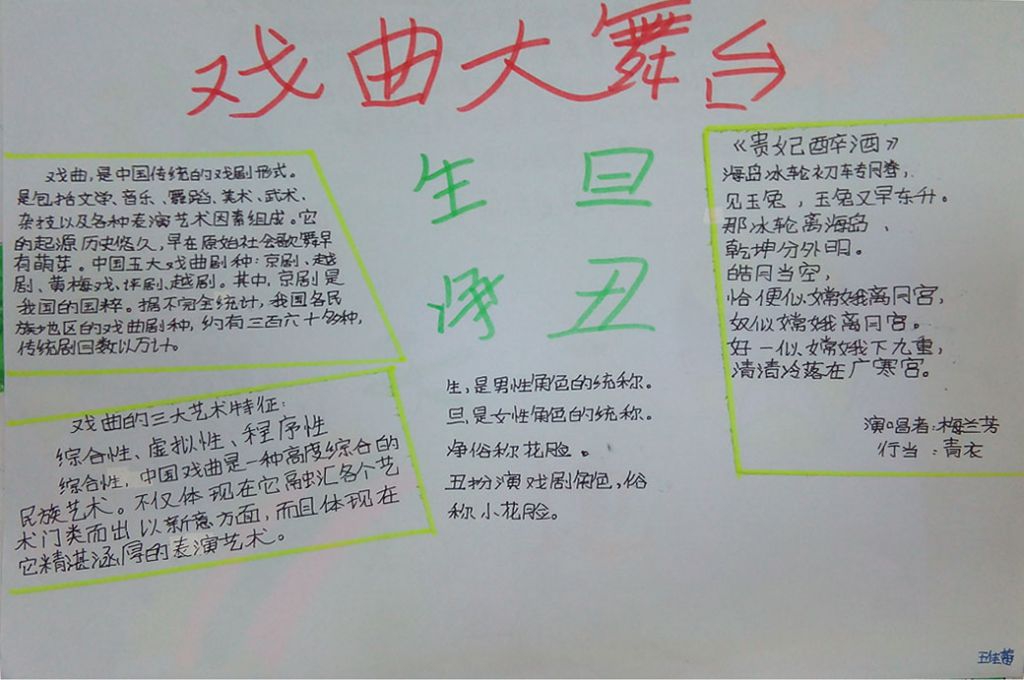 戏曲大舞台
戏曲,是中国传统的戏剧形式。
是包括文学、音乐、舞蹈、美术、武术、
杂技以及各种表演艺术因素组成。它
的起源历史悠久,早在原始社会歌舞早
有萌芽。中国五大戏曲剧种:京剧、越
剧、黄梅戏、评剧、越剧。其中,京剧是
我国的国粹。据不完全统计,我国各民
族地区的戏曲剧种,约有三百六十多种,
传统剧目数以万计。
戏曲的三大艺术特征:
综合性、虚拟性、程序性
综合性,中国戏曲是一种高度综合的
民族艺术。不仅体现在它融汇各个艺
术门类而出以新意方面,而且体现在
它精湛涵厚的表演艺术。
生 旦
净 丑
生,是男性角色的统称。
旦,是女性角色的统称。
净俗称花脸。
丑扮演戏剧角色,俗
称小花脸。
《贵妃醉酒》
海岛冰轮初车专月誊,
见玉兔,玉兔又早东升。
那冰轮离海岛、
乾坤分外明。
皓月当空,
恰便似嫦娥离月宫,
奴似嫦娥离月宫。
好一似嫦娥下九重,
清清冷落在广寒宫。
演唱者:梅兰芳
行当:青衣